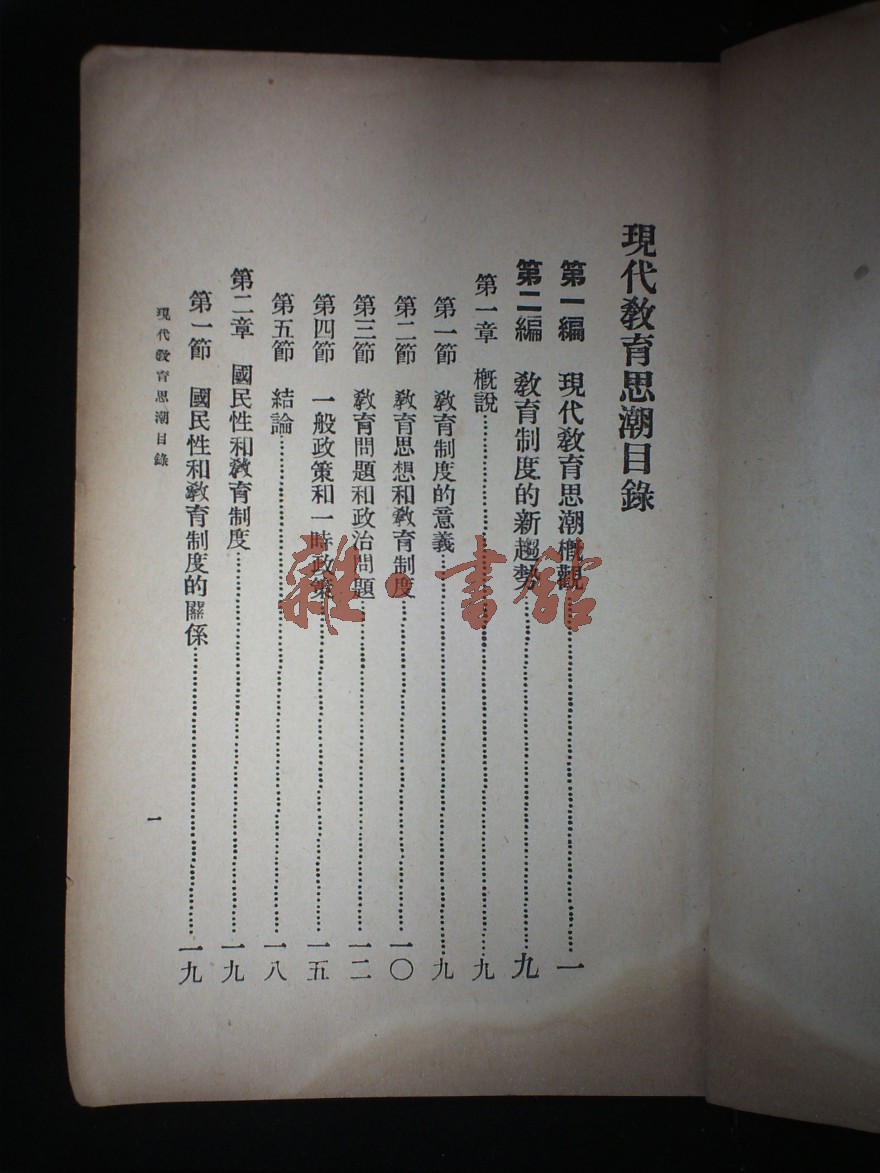 現代教育思潮目錄
第一編　現代教育思潮概觀……一
第二編　教育制度的新趨勢……九
第一章　概說……九
第一節　教育制度的意義……九
第二節　教育思想和教育制度……一〇
第三節　教育問題和政治問題……一二
第四節　一般政策和一時政策……一五
第五節　結論……一八
第二章　國民性和教育制度……一九
第一節　國民性和教育制度的關係……一九
現代教育思潮目錄
一
雜·書館